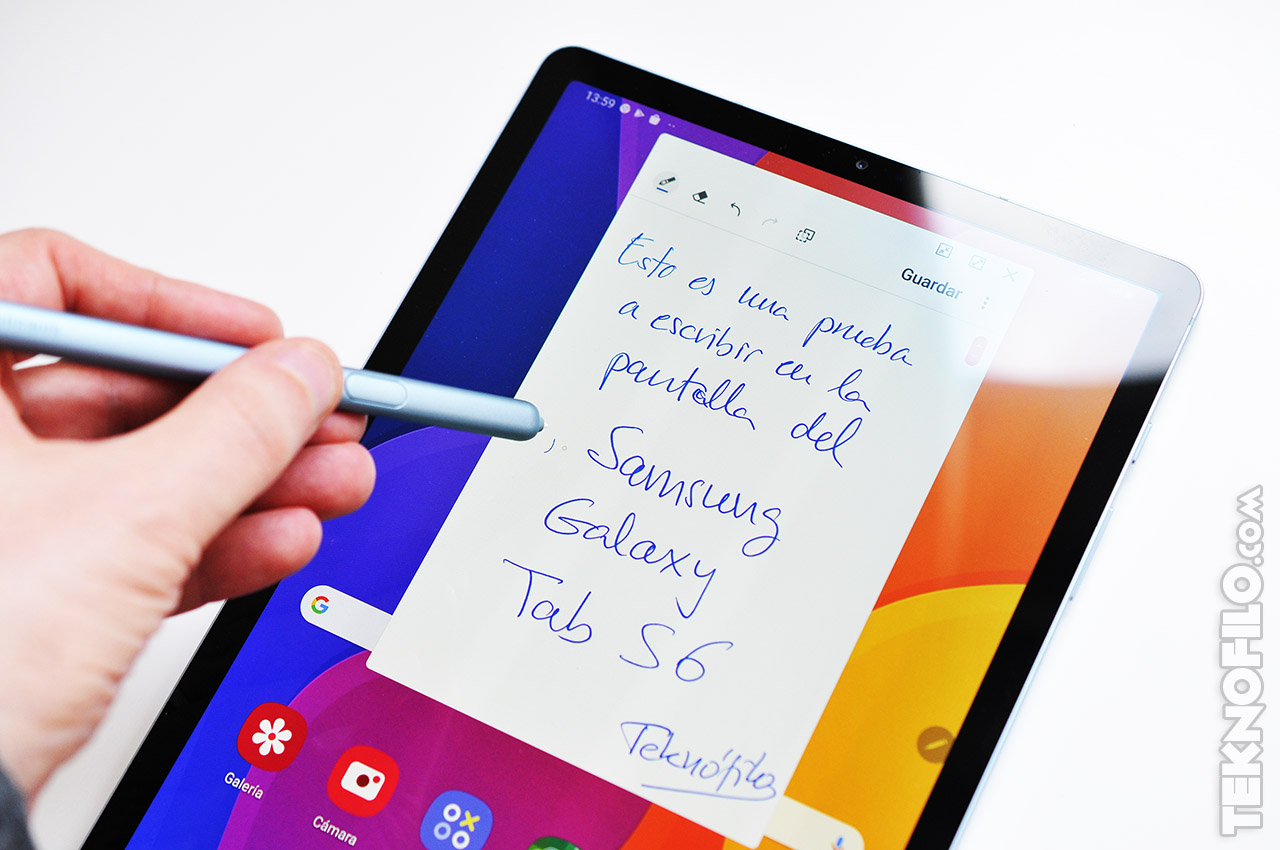 13:59
Guardar
Esto es una prueba
a escribir en la
pantalla del
Samsung
Galaxy
Tab S6
Teknófilo
G
Galería
Cámara
TEKNOFILO.COM